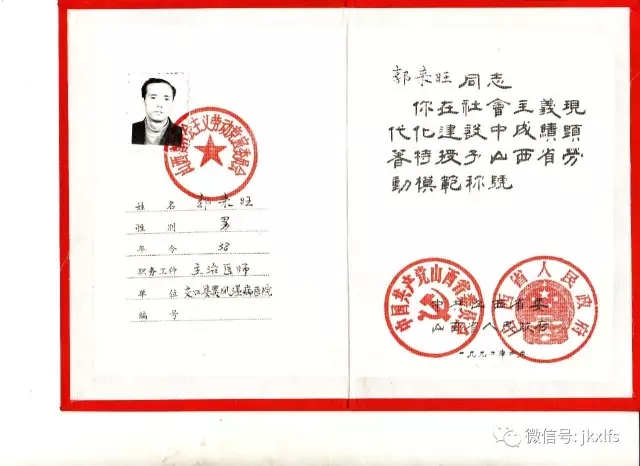 山西省社会主义劳动竞赛委员会
姓名 郭来旺
性别 男
年令 38
职务工种 主治医师
单位 交口县类风湿病医院
编号
郭来旺同志
你在社會主義現
代化建設中成績顯
著特授予山西省勞
動模範称號
中国共产党山西省委员会
山西省人民政府
中共山西省委
山西省人民政府
微信号: jkxlfs